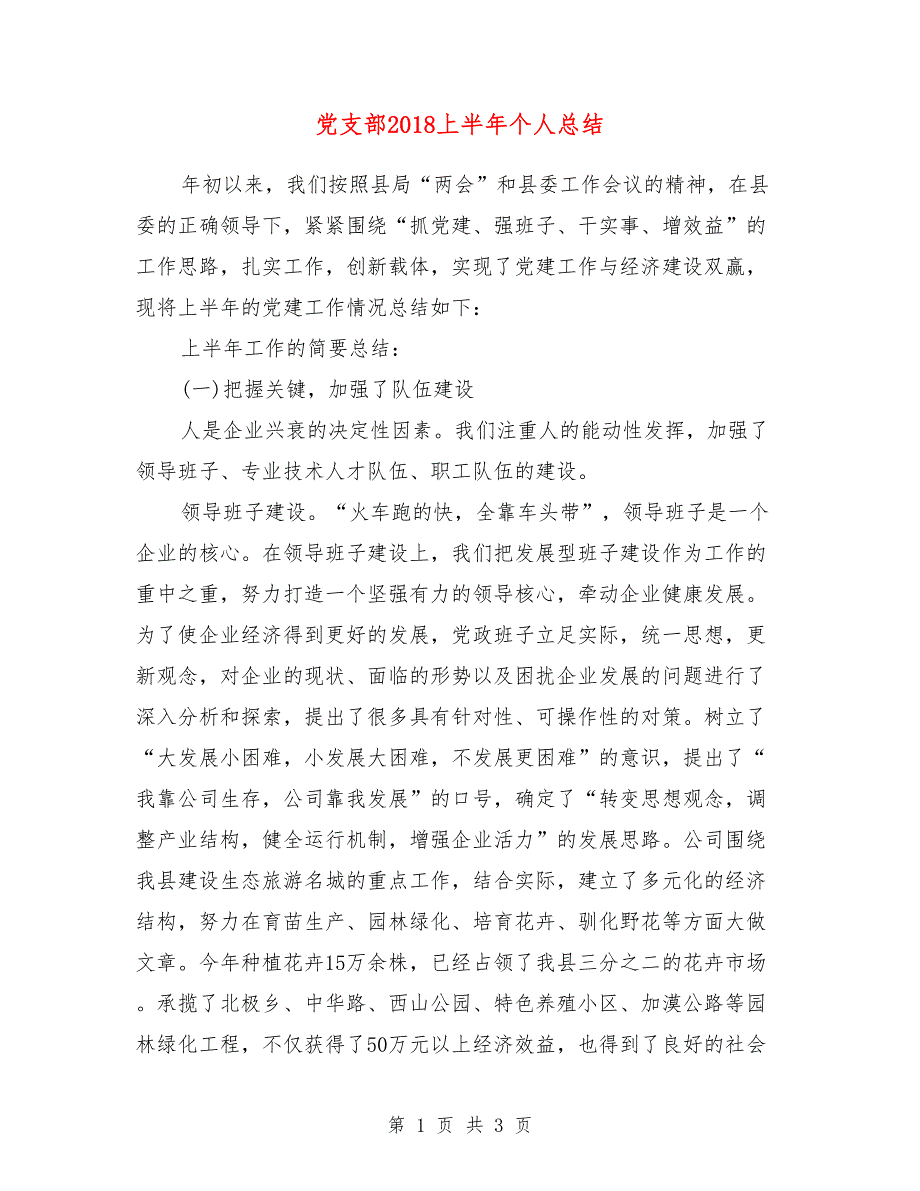 党支部2018上半年个人总结
年初以来，我们按照县局“两会”和县委工作会议的精神，在县
委的正确领导下，紧紧围绕“抓党建、强班子、干实事、增效益”的
工作思路，扎实工作，创新载体，实现了党建工作与经济建设双赢，
现将上半年的党建工作情况总结如下：
上半年工作的简要总结：
(一)把握关键，加强了队伍建设
人是企业兴衰的决定性因素。我们注重人的能动性发挥，加强了
领导班子、专业技术人才队伍、职工队伍的建设。
领导班子建设。“火车跑的快，全靠车头带”，领导班子是一个
企业的核心。在领导班子建设上，我们把发展型班子建设作为工作的
重中之重，努力打造一个坚强有力的领导核心，牵动企业健康发展。
为了使企业经济得到更好的发展，党政班子立足实际，统一思想，更
新观念，对企业的现状、面临的形势以及困扰企业发展的问题进行了
深入分析和探索，提出了很多具有针对性、可操作性的对策。树立了
“大发展小困难，小发展大困难，不发展更困难”的意识，提出了“
我靠公司生存，公司靠我发展”的口号，确定了“转变思想观念，调
整产业结构，健全运行机制，增强企业活力”的发展思路。公司围绕
我县建设生态旅游名城的重点工作，结合实际，建立了多元化的经济
结构，努力在育苗生产、园林绿化、培育花卉、驯化野花等方面大做
文章。今年种植花卉15万余株，已经占领了我县三分之二的花卉市场
。承揽了北极乡、中华路、西山公园、特色养殖小区、加漠公路等园
林绿化工程，不仅获得了50万元以上经济效益，也得到了良好的社会
第 1 页 共 3 页